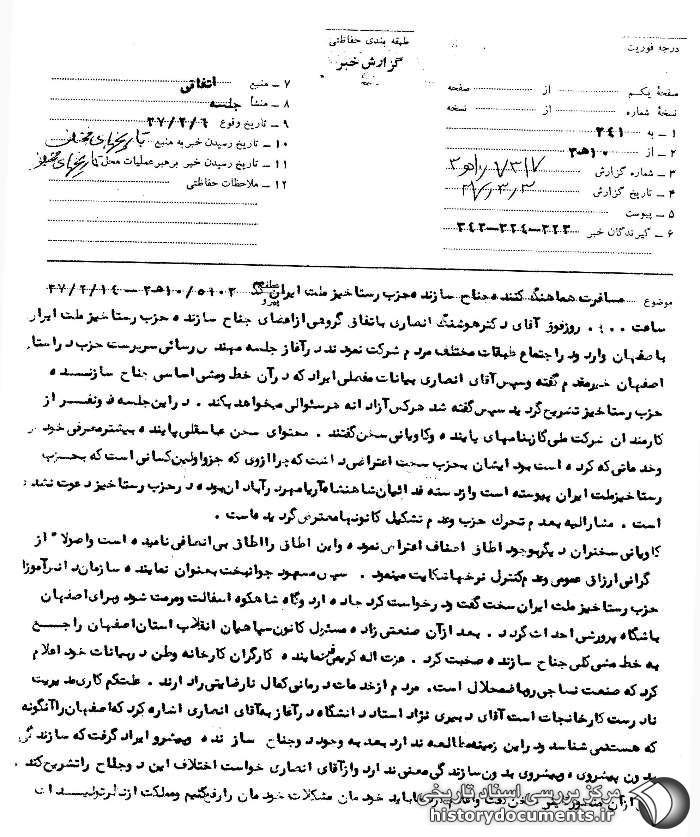 درجه فوریت
طبقه بندی حفاظتی
گزارش خبر
صفحهٔ یکم از صفحه
نسخهٔ شماره از نسخه
۱ - به ۳۴۱
۲ - از ۱۰هـ۳
۳ - شماره گزارش
۴ - تاریخ گزارش
۵ - پیوست
۶ - گیرندگان خبر ۳۲۳-۳۲۴-۳۴۲
۷ - منبع اتفاقی
۸ - منشأ جلسه
۹ - تاریخ وقوع ۳۷/۲/۶
۱۰ - تاریخ رسیدن خبر به منبع
۱۱ - تاریخ رسیدن خبر برهبر عملیات محل
۱۲ - ملاحظات حفاظتی
موضوع مسافرت هماهنگ کننده جناح سازنده حزب رستاخیز ملت ایران
ساعت روز فوق آقای دکتر هوشنگ انصاری باتفاق گروهی از اعضای جناح سازنده حزب رستاخیز ملت ایران
باصفهان وارد و در اجتماع طبقات مختلف مردم شرکت نمودند در آغاز جلسه مهندس رسائی سرپرست حزب در استان
اصفهان خیرمقدم گفته وسپس آقای انصاری بیانات مفصلی ایراد که در آن خط ومشی اساسی جناح سازنده
حزب رستاخیز تشریح گردید سپس گفته شد هرکس آزادانه هر سئوالی میخواهد بکند . در این جلسه دونفر از
کارمندان شرکت ملی گاز بنامهای پاینده وکاویانی سخن گفتند . محتوای سخن عباسقلی پاینده بیشتر معرفی خود
وخدماتی که کرده است بود ایشان بحزب سخت اعتراض داشت که چرا از وی که جزو اولین کسانی است که بحزب
رستاخیز ملت ایران پیوسته است واز دسته فدائیان شاهنشاه آریامهر در آبادان بوده در حزب رستاخیز دعوت نشده
است . مشارالیه بعدم تحرک حزب وعدم تشکیل کانونها معترض گردیده است .
کاویانی سخنران دیگر بوجود اطاق اصناف اعتراض نموده واین اطاق را اطاق بی انصافی نامیده است واصولا" از
گرانی ارزاق عمومی وعدم کنترل نرخها شکایت مینمود . سپس مسعود جوانبخت بعنوان نماینده سازمان دانش آموزان
حزب رستاخیز ملت ایران سخن گفت ودرخواست کرد جاده اردوگاه شاهکوه اسفالت ومرمت شود وبرای اصفهان
باشگاه پرورشی احداث گردد . بعد از آن صنعتی زاده مسئول کانون سپاهیان انقلاب استان اصفهان راجع
به خط مشی کلی جناح سازنده صحبت کرد . عزت اله کریمی نماینده کارگران کارخانه وطن در بیانات خود اعلام
کرد که صنعت نساجی روباضمحلال است . مردم از خدمات درمانی کمال نارضایتی را دارند . علت کم کاری مدیریت
نادرست کارخانجات است آقای دبیری نژاد استاد دانشگاه در آغاز به آقای انصاری اشاره کرد که اصفهان را آنگونه
که هست نمی شناسد ودر این زمینه مطالعه ندارد بعد به وجود دوجناح سازنده وپیشرو ایراد گرفت که سازندگی
بدون پیشروی وپیشروی بدون سازندگی معنی ندارد واز آقای انصاری خواست اختلاف این دوجناح را تشریح کند .
باید خودمان مشکلات خودمان را رفع کنیم ومملکت از نظر تولیدات
مرکز بررسی اسناد تاریخی
historydocuments.ir